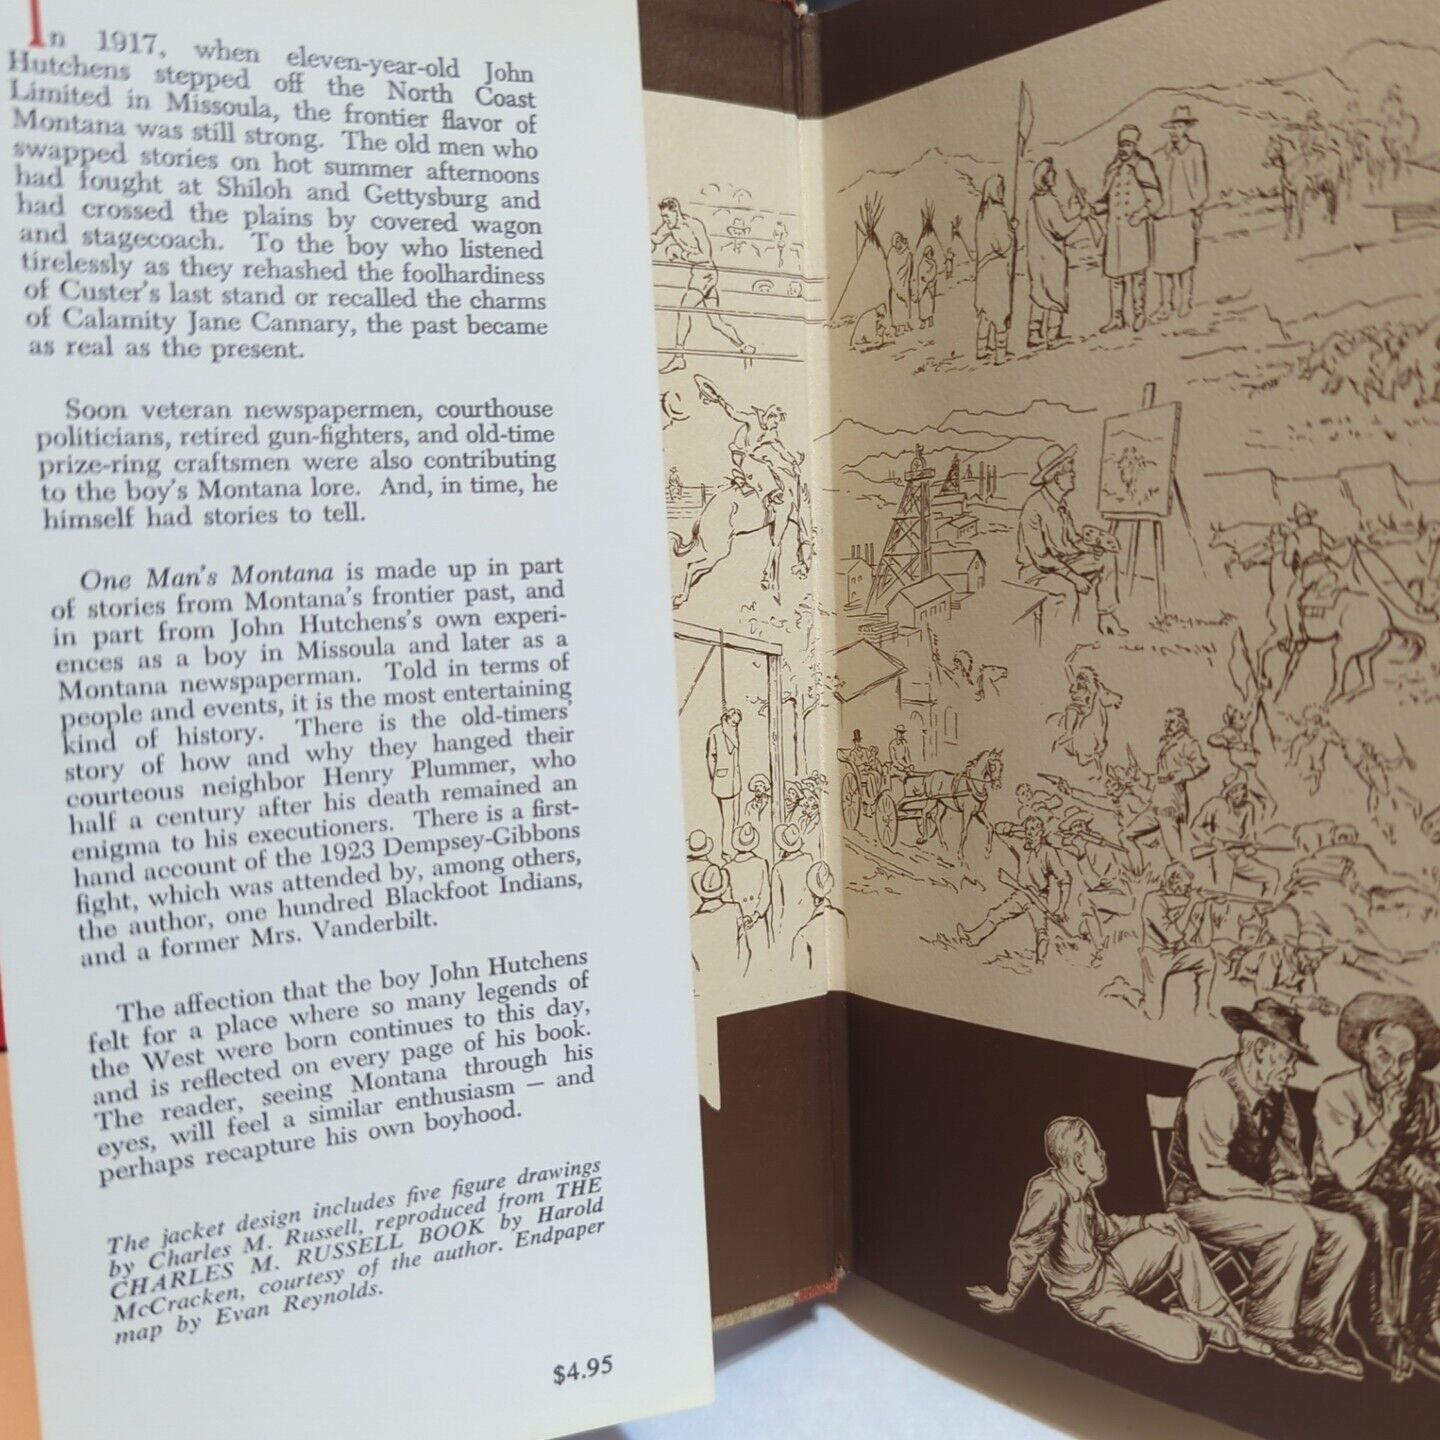 In 1917, when eleven-year-old John
Hutchens stepped off the North Coast
Limited in Missoula, the frontier flavor of
Montana was still strong. The old men who
swapped stories on hot summer afternoons
had fought at Shiloh and Gettysburg and
had crossed the plains by covered wagon
and stagecoach. To the boy who listened
tirelessly as they rehashed the foolhardiness
of Custer's last stand or recalled the charms
of Calamity Jane Cannary, the past became
as real as the present.
Soon veteran newspapermen, courthouse
politicians, retired gun-fighters, and old-time
prize-ring craftsmen were also contributing
to the boy's Montana lore. And, in time, he
himself had stories to tell.
One Man's Montana is made up in part
of stories from Montana's frontier past, and
in part from John Hutchens's own experi-
ences as a boy in Missoula and later as a
Montana newspaperman. Told in terms of
people and events, it is the most entertaining
kind of history. There is the old-timers'
story of how and why they hanged their
courteous neighbor Henry Plummer, who
half a century after his death remained an
enigma to his executioners. There is a first-
hand account of the 1923 Dempsey-Gibbons
fight, which was attended by, among others,
the author, one hundred Blackfoot Indians,
and a former Mrs. Vanderbilt.
The affection that the boy John Hutchens
felt for a place where so many legends of
the West were born continues to this day,
and is reflected on every page of his book.
The reader, seeing Montana through his
eyes, will feel a similar enthusiasm — and
perhaps recapture his own boyhood.
The jacket design includes five figure drawings
by Charles M. Russell, reproduced from THE
CHARLES M. RUSSELL BOOK by Harold
McCracken, courtesy of the author. Endpaper
map by Evan Reynolds.
$4.95